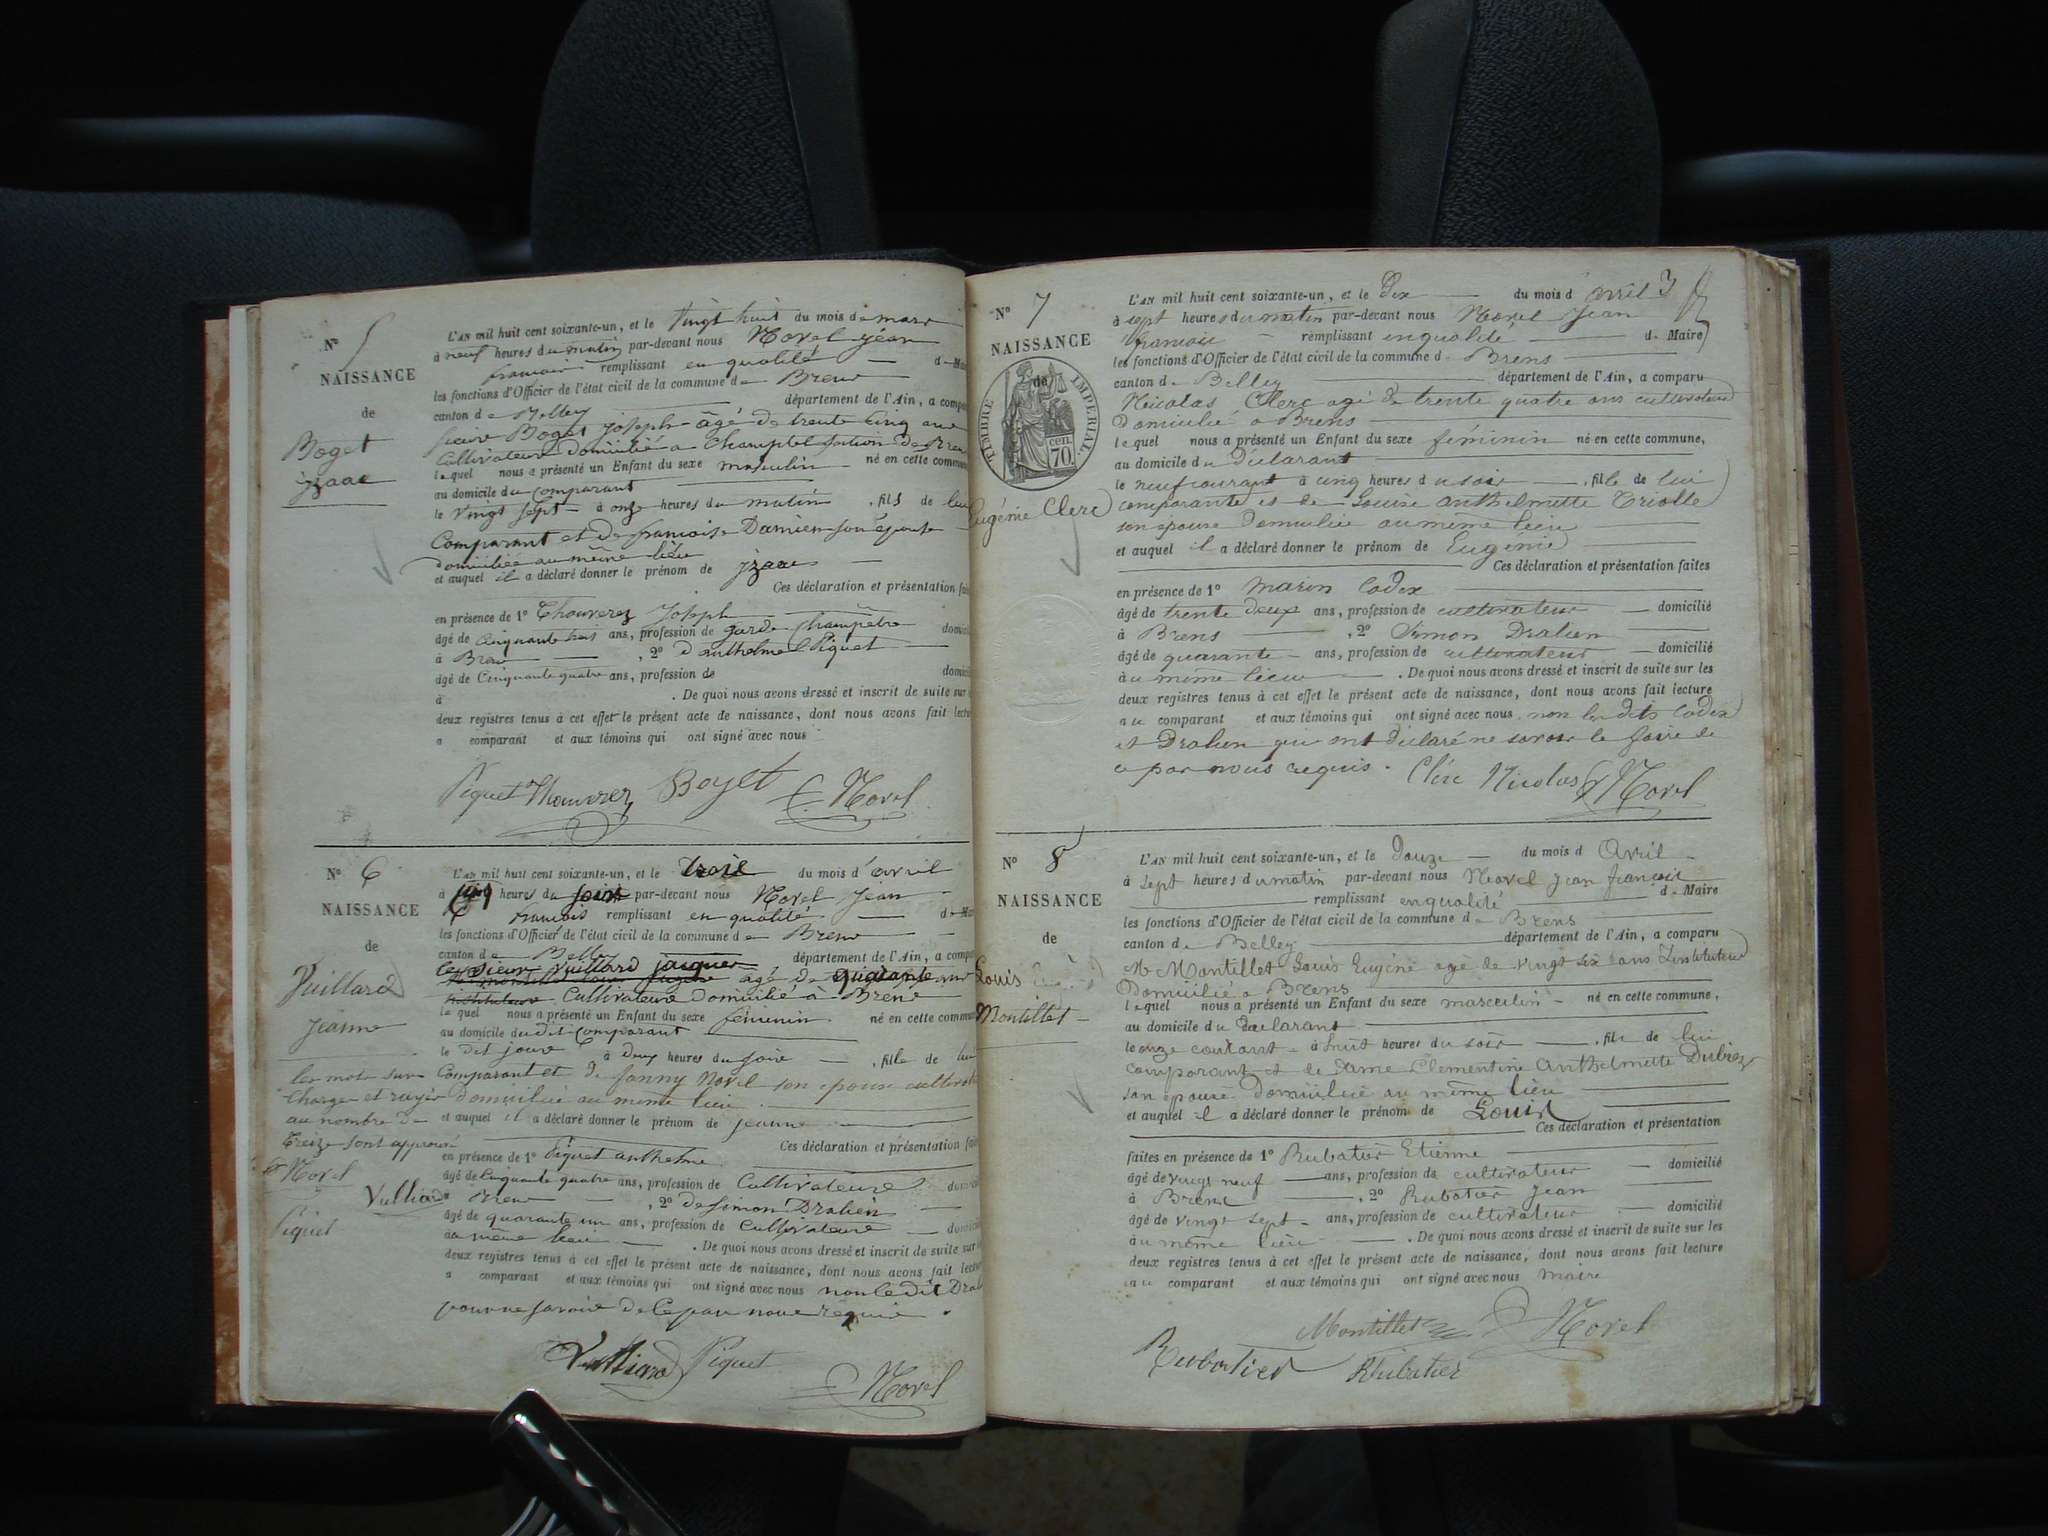 N° 5
NAISSANCE
de
Boget
jzaac
L'AN mil huit cent soixante-un, et le Vingt huit du mois de mars
à neuf heures du matin par-devant nous Morel jéan
francois remplissant en qualité d
les fonctions d'Officier de l'état civil de la commune de Brens
canton de Belley département de l'Ain, a compa
sieur Boget joseph âgé de trente cinq ans
Cultivateur domicilié a Champtel section de Bren
lequel nous a présenté un Enfant du sexe masculin né en cette commun
au domicile du comparant
le Vingt sept à onze heures du matin , fils de lui
Comparant et de francoise Damien son épouse
domiciliée au même lieu
et auquel il a déclaré donner le prénom de jzaac
Ces déclaration et présentation fai
en présence de 1° Thouverez Joseph
âgé de Cinquante trois ans, profession de garde champêtre domici
à Brens , 2° d'anthelme Piquet
âgé de Cinquante quatre ans, profession de domici
à . De quoi nous avons dressé et inscrit de suite sur
deux registres tenus à cet effet le présent acte de naissance, dont nous avons fait lectu
a comparant et aux témoins qui ont signé avec nous
Piquet Thouverez Boget Morel
N° 6
NAISSANCE
de
Vuillard
Jeanne
les mots sur
charger et rayer
au nombre de
treize sont approuvé
Morel
Vulliard
Piquet
L'AN mil huit cent soixante-un, et le trois du mois d'avril
à cinq heures du soir par-devant nous Morel Jean
francois remplissant en qualité d
les fonctions d'Officier de l'état civil de la commune de Brens
canton de Belley département de l'Ain, a compa
le sieur Vuillard jacques
âgé de quarante
instituteur Cultivateur domicilié à Brens
lequel nous a présenté un Enfant du sexe féminin né en cette commun
au domicile dudit comparant
le dit jour à deux heures du soir , fille de lui
Comparant et de fanny Morel son epouse
domicilié au meme lieu
et auquel il a déclaré donner le prénom de jeanne
Ces déclaration et présentation fai
en présence de 1° Piquet anthelme
âgé de Cinquante quatre ans, profession de Cultivateur
à Brens , 2° de Simon Dralien
âgé de quarante un ans, profession de Cultivateur
au même lieu . De quoi nous avons dressé et inscrit de suite sur
deux registres tenus à cet effet le présent acte de naissance, dont nous avons fait lectu
a comparant et aux témoins qui ont signé avec nous non le dit Dral
pour ne savoir de ce par nous requis
Vulliard Piquet
Morel
N° 7
NAISSANCE
de
TIMBRE IMPERIAL
70 cen.
Eugénie Clerc
L'AN mil huit cent soixante-un, et le Dix du mois d avril 3
à sept heures du matin par-devant nous Morel Jean
francois remplissant en qualité de Maire
les fonctions d'Officier de l'état civil de la commune de Brens
canton de Belley département de l'Ain, a comparu
Nicolas Clerc agé de trente quatre ans cultivateur
Domicilié a Brens
lequel nous a présenté un Enfant du sexe féminin né en cette commune,
au domicile du déclarant
le neuf courant à cinq heures du soir , fille de lui
comparante et de Louise Anthelmette Triolle
son épouse Domiciliée au même lieu
et auquel il a déclaré donner le prénom de Eugénie
Ces déclaration et présentation faites
en présence de 1° Marin Codex
âgé de trente deux ans, profession de cultivateur domicilié
à Brens , 2° Simon Dralien
âgé de quarante ans, profession de cultivateur domicilié
au même lieu . De quoi nous avons dressé et inscrit de suite sur les
deux registres tenus à cet effet le présent acte de naissance, dont nous avons fait lecture
au comparant et aux témoins qui ont signé avec nous non les dits Codex
et Dralien qui ont déclaré ne savoir le faire de
ce par nous requis. Clerc Nicolas Morel
N° 8
NAISSANCE
de
Louis
Montillet
L'AN mil huit cent soixante-un, et le Douze du mois d Avril
à sept heures du matin par-devant nous Morel Jean francois
remplissant en qualité de Maire
les fonctions d'Officier de l'état civil de la commune de Brens
canton de Belley département de l'Ain, a comparu
Mr Montillet Louis Eugéne agé de vingt six ans Instituteur
Domicilié a Brens
lequel nous a présenté un Enfant du sexe masculin né en cette commune,
au domicile du déclarant
le onze courant à huit heures du soir , fils de lui
comparant et de Dame Clementine Anthelmette Dubiez
son épouse Domiciliée au même lieu
et auquel il a déclaré donner le prénom de Louis
Ces déclaration et présentation
faites en présence de 1° Rubatier Etienne
âgé de vingt neuf ans, profession de cultivateur domicilié
à Brens , 2° Rubatier Jean
âgé de vingt sept ans, profession de cultivateur domicilié
au même lieu . De quoi nous avons dressé et inscrit de suite sur les
deux registres tenus à cet effet le présent acte de naissance, dont nous avons fait lecture
au comparant et aux témoins qui ont signé avec nous maire
Montillet Morel
Rubatier Rubatier